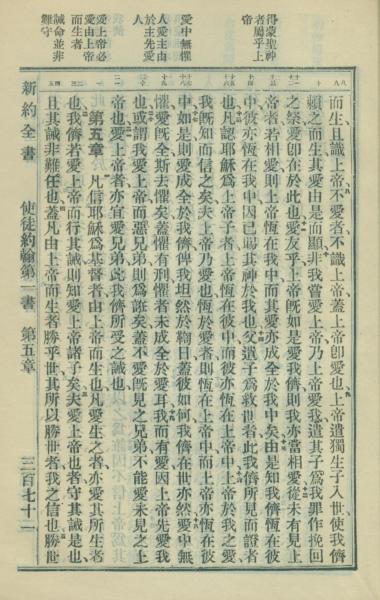 得蒙聖神
者屬乎上
帝
愛中無懼
人愛主由
於主先愛
人
愛上帝必
愛由上帝
而生者
誡命並非
難守
而生且識上帝不愛者不識上帝蓋上帝卽愛也上帝遣獨生子入世使我儕
賴之而生其愛由是而顯非我嘗愛上帝乃上帝愛我遣其子爲我罪作挽回
之祭愛卽在於此也愛友乎上帝旣如是愛我儕則我亦當相愛從未有見上
帝者若相愛則上帝恆在我中而其愛亦成全於我中矣由是知我儕恆在彼
中彼亦恆在我中因已賜其神於我也父遣子爲救世者此我儕所見而證者
也凡認耶穌爲上帝子者上帝恆在彼中而彼亦恆在上帝中上帝於我之愛
我旣知而信之矣夫上帝乃愛也恆於愛者則恆在上帝中而上帝亦恆在彼
中如是則愛成全於我儕俾我坦然於鞫日蓋彼如何我儕在世亦然愛中無
懼愛旣全斯去懼矣蓋懼有刑懼者未成全於愛耳我而有愛因上帝先愛我
也或謂我愛上帝而惡兄弟則爲誑矣蓋不愛旣見之兄弟不能愛未見之上
帝也愛上帝者亦宜愛兄弟此我儕所受之誡也
第五章 凡信耶穌爲基督者由上帝而生也凡愛生之者亦愛其所生者
也我儕若愛上帝而行其誡則知愛上帝諸子矣夫愛上帝也者守其誡是也
且其誡非難任也蓋凡由上帝而生者勝乎世其所以勝世者我之信也勝世
新約全書 使徒約翰第一書 第五章 三百七十二